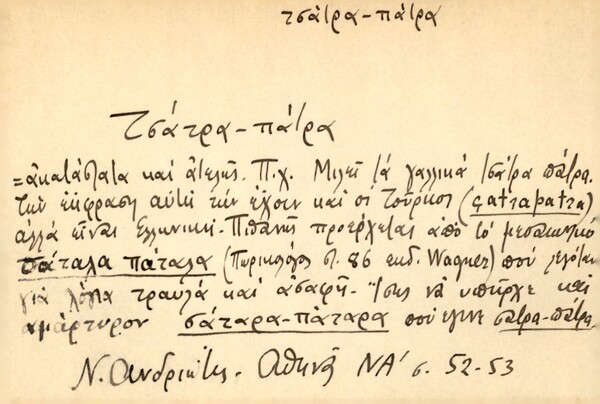 τσάτρα-πάτρα
Τσάτρα-πάτρα
=ἀκατάστατα καὶ ἀτελῆς. Π.χ. Μιλεῖ τά γαλλικά τσάτρα πάτρα.
Τὴν ἔκφραση αὐτὴ τὴν ἔχουν καὶ οἱ Τοῦρκοι (çatrapatra)
ἀλλά εἶναι Ἑλληνική. Πιθανῶς προέρχεται ἀπό τό μεσαιωνικό
σάταλα πάταλα (Πωρικολόγος στ. 86 εκδ. Wagner) πού λεγόταν
γιά λόγια τραυλά καὶ ἀσαφῆ. Ἴσως νά ὑπῆρχε καὶ
ἀμάρτυρον σάταρα-πάταρα πού ἔγινε σάτρα-πάτρα.
Ν. Ανδριώτης. Αθηνᾶ ΝΑ' σ. 52-53